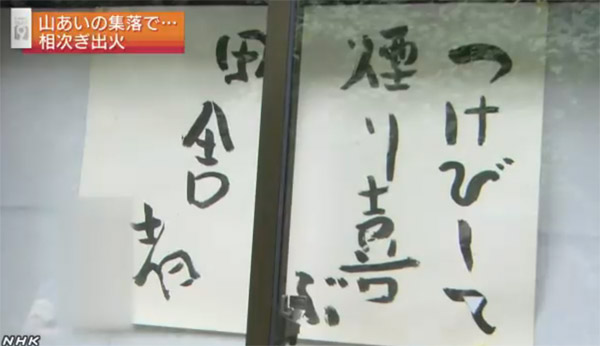 山あいの集落で…
相次ぎ出火
つけびーして
煙り喜ぶ
田舎者
NHK